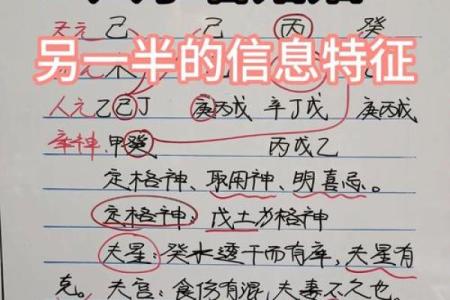 天元 己 己 丙 癸
另一半的信息特征
人元 乙己丁 庚丙戊 辛丁戊 庚丙戊
甲癸 丙戊乙
定格神、取用神、明喜忌。
定格神：戊土为格神
夫星：癸水透干而有库，夫星有
克。夫宫：食伤有混，夫妻不久也，